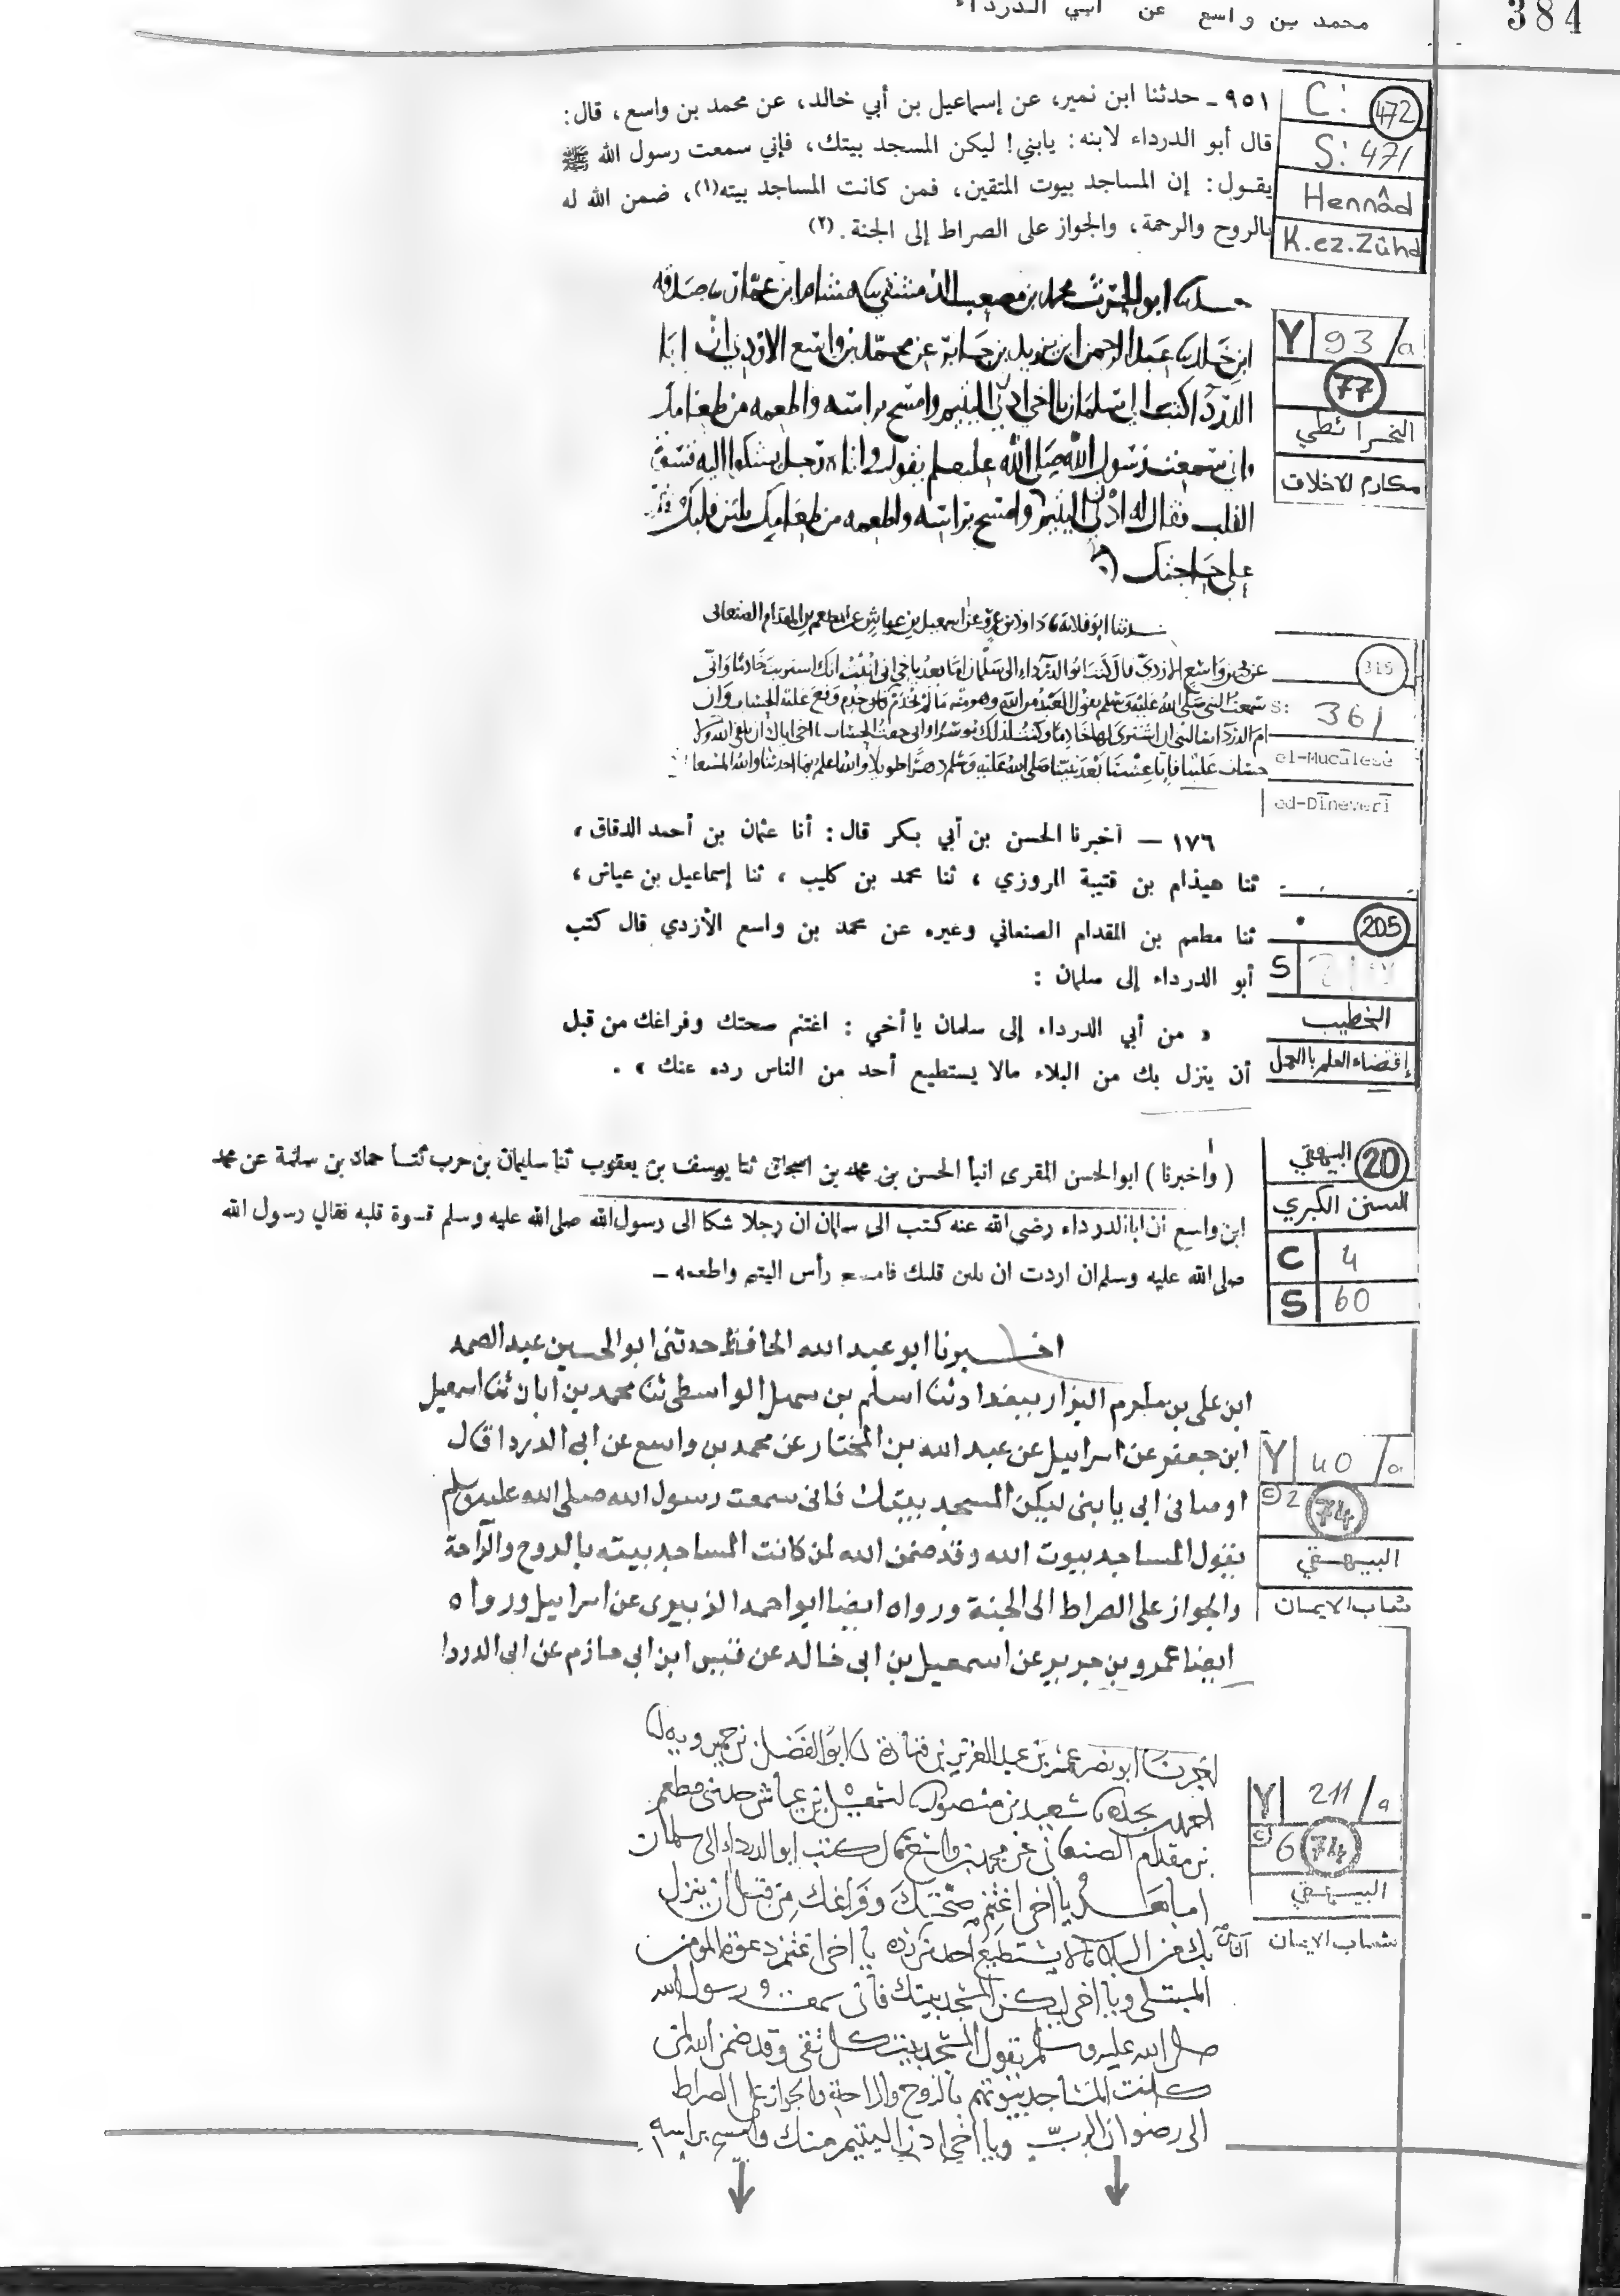 384
محمد بن واسع عن ابي الدرداء
C: 472
S: 471
Hennâd
K.ez.Zühd
٩٥١ ـ حدثنا ابن نمير، عن إسماعيل بن أبي خالد، عن محمد بن واسع، قال:
قال أبو الدرداء لابنه: يابني! ليكن المسجد بيتك، فإني سمعت رسول الله ﷺ
يقول: إن المساجد بيوت المتقين، فمن كانت المساجد بيته(١)، ضمن الله له
بالروح والرحمة، والجواز على الصراط إلى الجنة.(٢)
Y 93/a
77
الخرائطي
مكارم الاخلاق
محمد بن مصعب الدمشقي هشام ابن عمار صدقه
ابن خالد عبد الرحمن ابن يزيد بن جابر عن محمد بن واسع الازدي ان ابا
الدردا كتب الي سلمان يا اخي ادن اليتيم وامسح براسه واطعمه من طعامك
واني سمعت رسول الله صلى الله عليه وسلم يقول واتاه رجل يشكوا اليه قسوة
القلب فقال له ادن اليتيم وامسح براسه واطعمه من طعامك يلن قلبك
علي حاجتك
315
S: 361
el-Mucâlese
ed-Dîneverî
ابو قلابة داود بن عمرو عن اسمعيل بن عياش عن المطعم بن المقدام الصنعانى
عن محمد بن واسع الازدي قال كتب ابو الدرداء الى سلمان اما بعد يا اخي اني انبئت انك اشتريت خادما واني
سمعت النبي صلى الله عليه وسلم يقول العبد من الله وهو منه ما لم يخدم فاذا خدم وقع عليه الحساب وان
ام الدرداء سالتني ان اشتري لها خادما وكنت لذلك موسرا واني خفت الحساب يا اخي
حساب علينا فانا عشنا بعد نبينا صلى الله عليه وسلم دهرا طويلا والله اعلم بما احدثنا والله المستعان
205
S
الخطيب
إقتضاء العلم بالعمل
١٧٦ — أخبرنا الحسن بن أبي بكر قال: أنا عثمان بن أحمد الدقاق،
ثنا هيذام بن قتيبة المروزي، ثنا محمد بن كليب، ثنا إسماعيل بن عياش،
ثنا مطعم بن المقدام الصنعاني وغيره عن محمد بن واسع الأزدي قال كتب
أبو الدرداء إلى سلمان:
« من أبي الدرداء إلى سلمان يا أخي: اغتنم صحتك وفراغك من قبل
أن ينزل بك من البلاء مالا يستطيع أحد من الناس رده عنك ».
20 البيهقي
السنن الكبري
C 4
S 60
( واخبرنا ) ابو الحسن المقرى انبأ الحسن بن محمد بن اسحاق ثنا يوسف بن يعقوب ثنا سليمان بن حرب ثنا حماد بن سلمة عن محمد
ابن واسع ان ابا الدرداء رضى الله عنه كتب الى سلمان ان رجلا شكا الى رسول الله صلى الله عليه وسلم قسوة قلبه فقال رسول الله
صلى الله عليه وسلم ان اردت ان يلين قلبك فامسح رأس اليتيم واطعمه ـ
Y 40/a
C 2 74
البيهقي
شعاب الايمان
اخبرنا ابو عبد الله الحافظ حدثنى ابو الحسين عبد الصمد
ابن على بن مكرم البزار ببغداد ثنا اسلم بن سهل الواسطى ثنا محمد بن ابان ثنا اسمعيل
ابن جعفر عن اسرائيل عن عبد الله بن المختار عن محمد بن واسع عن ابى الدردا قال
اوصانى ابى يا بنى ليكن المسجد بيتك فانى سمعت رسول الله صلى الله عليه وسلم
يقول المساجد بيوت الله وقد ضمن الله لمن كانت المساجد بيته بالروح والراحة
والجواز على الصراط الى الجنة ورواه ايضا ابو احمد الزبيرى عن اسرائيل ورواه
ايضا عمرو بن جرير عن اسمعيل بن ابى خالد عن قيس ابن ابى حازم عن ابى الدردا
Y 211/a
C 6 74
البيهقي
شعاب الايمان
اخبرنا ابو نصر عمر بن عبد العزيز بن قتادة انا ابو الفضل بن خميرويه انا
احمد بن نجدة نا سعيد بن منصور نا اسمعيل بن عياش حدثنى مطعم
بن مقدام الصنعانى عن محمد بن واسع قال كتب ابو الدرداء الى سلمان
اما بعد يا اخى اغتنم صحتك وفراغك من قبل ان ينزل
بك من البلاء ما لا يستطيع احد من الناس رده يا اخى اغتنم دعوة المومن
المبتلى ويا اخى ليكن المسجد بيتك فانى سمعت رسول الله
صلى الله عليه وسلم يقول المسجد بيت كل تقى وقد ضمن الله لمن
كانت المساجد بيوتهم بالروح والراحة والجواز على الصراط
الى رضوان الرب ويا اخى ادن اليتيم منك وامسح براسه